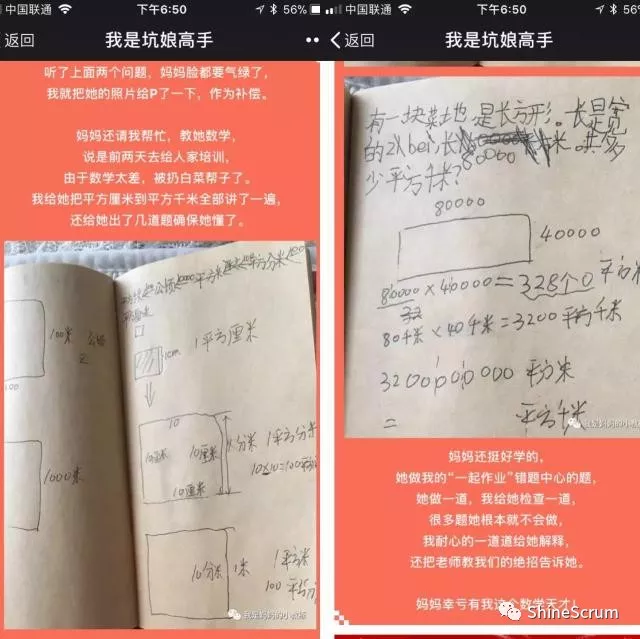 中国联通 下午6:50 56%
返回 我是坑娘高手
听了上面两个问题，妈妈脸都要气绿了，
我就把她的照片给P了一下，作为补偿。
妈妈还请我帮忙，教她数学，
说是前两天去给人家培训，
由于数学太差，被扔白菜帮子了。
我给她把平方厘米到平方千米全部讲了一遍，
还给她出了几道题确保她懂了。
100米
100
1000米
1cm
1平方厘米
10
10厘米
10厘米
1分米
1平方分米
10×10=100平方
10厘米
10分米
1米
1平方米
100平方分
我是妈妈的小教练
中国联通 下午6:50 56%
返回 我是坑娘高手
有一块菜地是长方形。长是宽
的2倍bei，长
80000
米。共多
少平方千米？
80000
40000
80000×40000=328个0平方米
80千米×40千米=3200平方千米
3200000000平方米
=
平方千米
我是妈妈的小教练
妈妈还挺好学的，
她做我的“一起作业”错题中心的题，
她做一道，我给她检查一道，
很多题她根本就不会做，
我耐心的一道道给她解释，
还把老师教我们的绝招告诉她。
妈妈幸亏有我这个数学天才！
ShineScrum